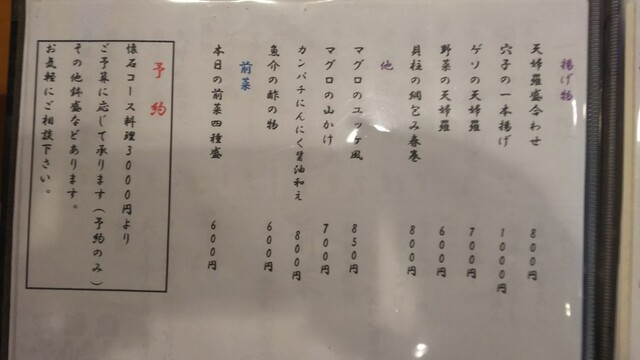 揚げ物
天婦羅盛合わせ 800円
穴子の一本揚げ 1000円
ゲソの天婦羅 700円
野菜の天婦羅 600円
貝柱の網包み春巻 800円
他
マグロのユッケ風 850円
マグロの山かけ 700円
カンパチにんにく醤油和え 800円
魚介の酢の物 600円
前菜
本日の前菜四種盛 600円
予約
懐石コース料理3000円より
ご予算に応じて承ります(予約のみ)
その他鉢盛などあります。
お気軽にご相談下さい。